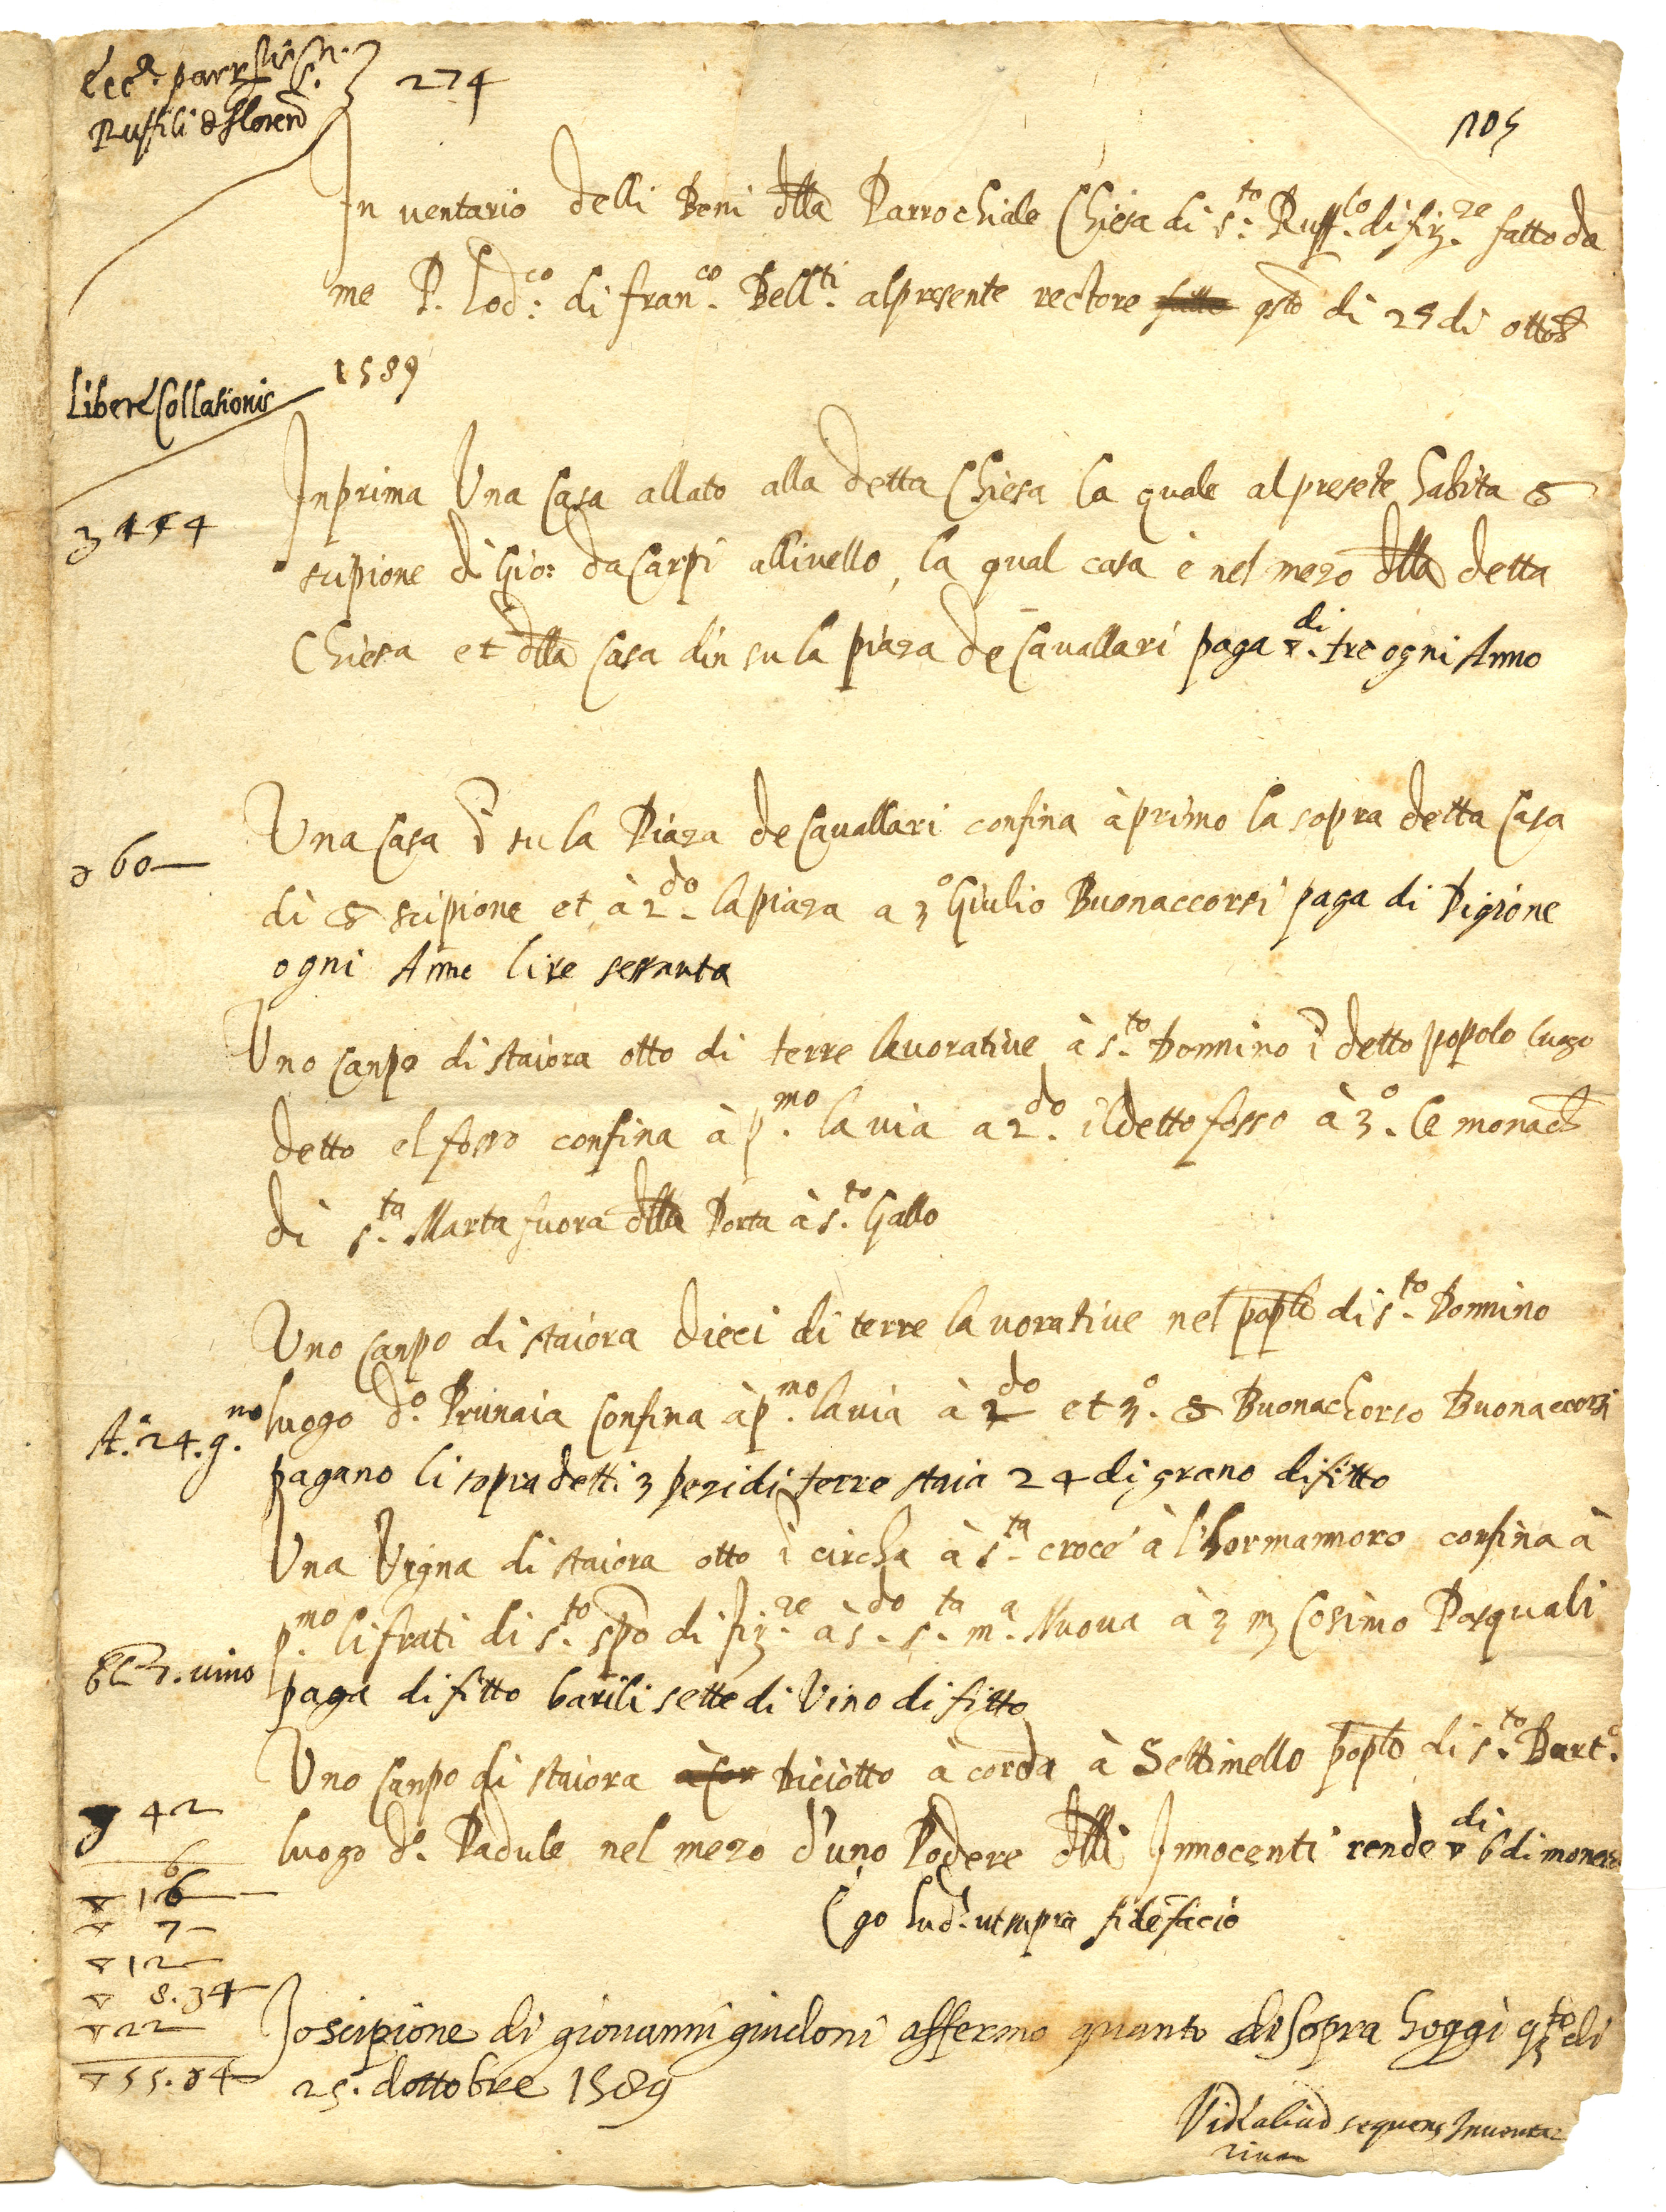 Ecc.a parr.lis S.n.
Ruffili de Floren.
274
105
Inventario delli Beni della Parrochiale Chiesa di s.to Ruff.lo di fir.ze fatto da
me P. Lod.co di fran.co Bell.ti alpresente rectore fatto qsto di 25 di ottob
1589
Libere Collationis
Inprima Una Casa allato alla detta Chiesa la quale al presete habita S
scipione di Gio: da Carpi allivello, la qual casa è nel mezo della detta
Chiesa et della Casa din su la piaza de Cavallari paga di tre ogni Anno
Una Casa i su la Piaza de Cavallari confina à primo la sopra detta Casa
60
di S scipione et à 2.do la piaza a 3.o Giulio Buonaccorsi paga di Pigione
ogni Anno lire sessanta
Uno Canpo di staiora otto di terre lavorative à s.to Donnino i detto popolo luogo
detto el fosso confina à p.mo la via a 2.do il detto fosso à 3.o le monach
di s.ta Marta fuora della Porta à s.to Gallo
Uno Canpo di staiora dieci di terre lavorative nel poplo di s.to Donnino
luogo d.o Prunaia Confina à p.mo la via à 2.do et 3.o S Buonachorso Buonaccorsi
st.a 24. g.no
pagano li sopra detti 3 pezi di terre staia 24 di grano di fitto
Una Vigna di staiora otto i circha à s.ta croce à l'hormannoro confina à
p.mo li frati di s.to spo di fir.ze à s.do s.ta m.a Nuova à 3 m Cosimo Pasquali
bl 7. vino
paga di fitto barili sette di Vino di fitto
Uno Canpo di staiora à cor diciotto à corda à Settimello poplo di s.to Bart.o
42
luogo d.o Padule nel mezo d'uno Podere delli Innocenti rende di 6 di moneta
6
16
Ego Lud.s ut supra fide facio
7
12
8.34
Io scipione di giovanni giudoni affermo quanto di sopra hoggi q.to di
22
25. dottobre 1589
55.04
Vid aliud sequens Inventa=
rium